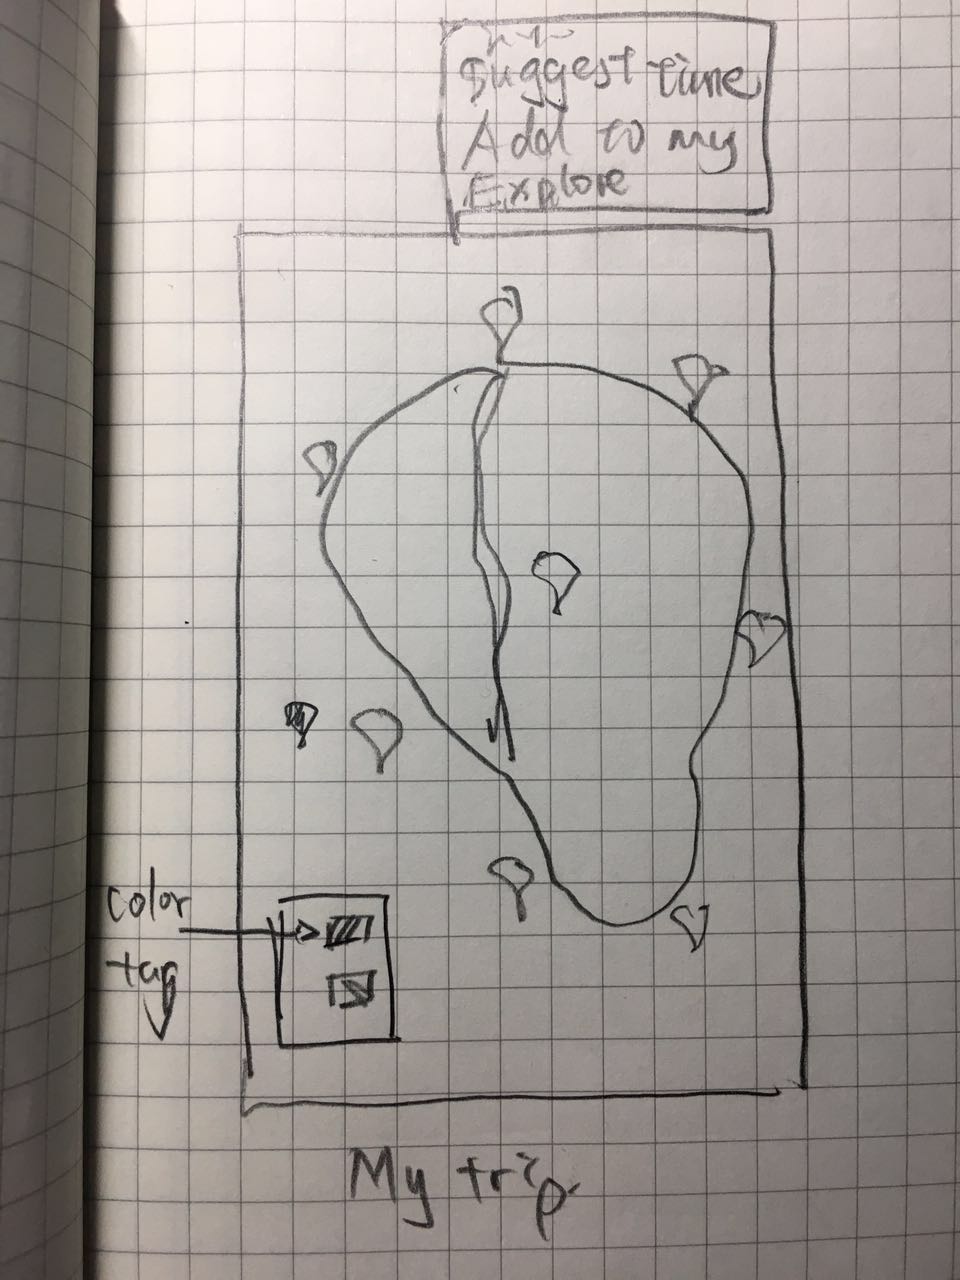 Suggest time
Add to my
Explore
color
tag
My trip